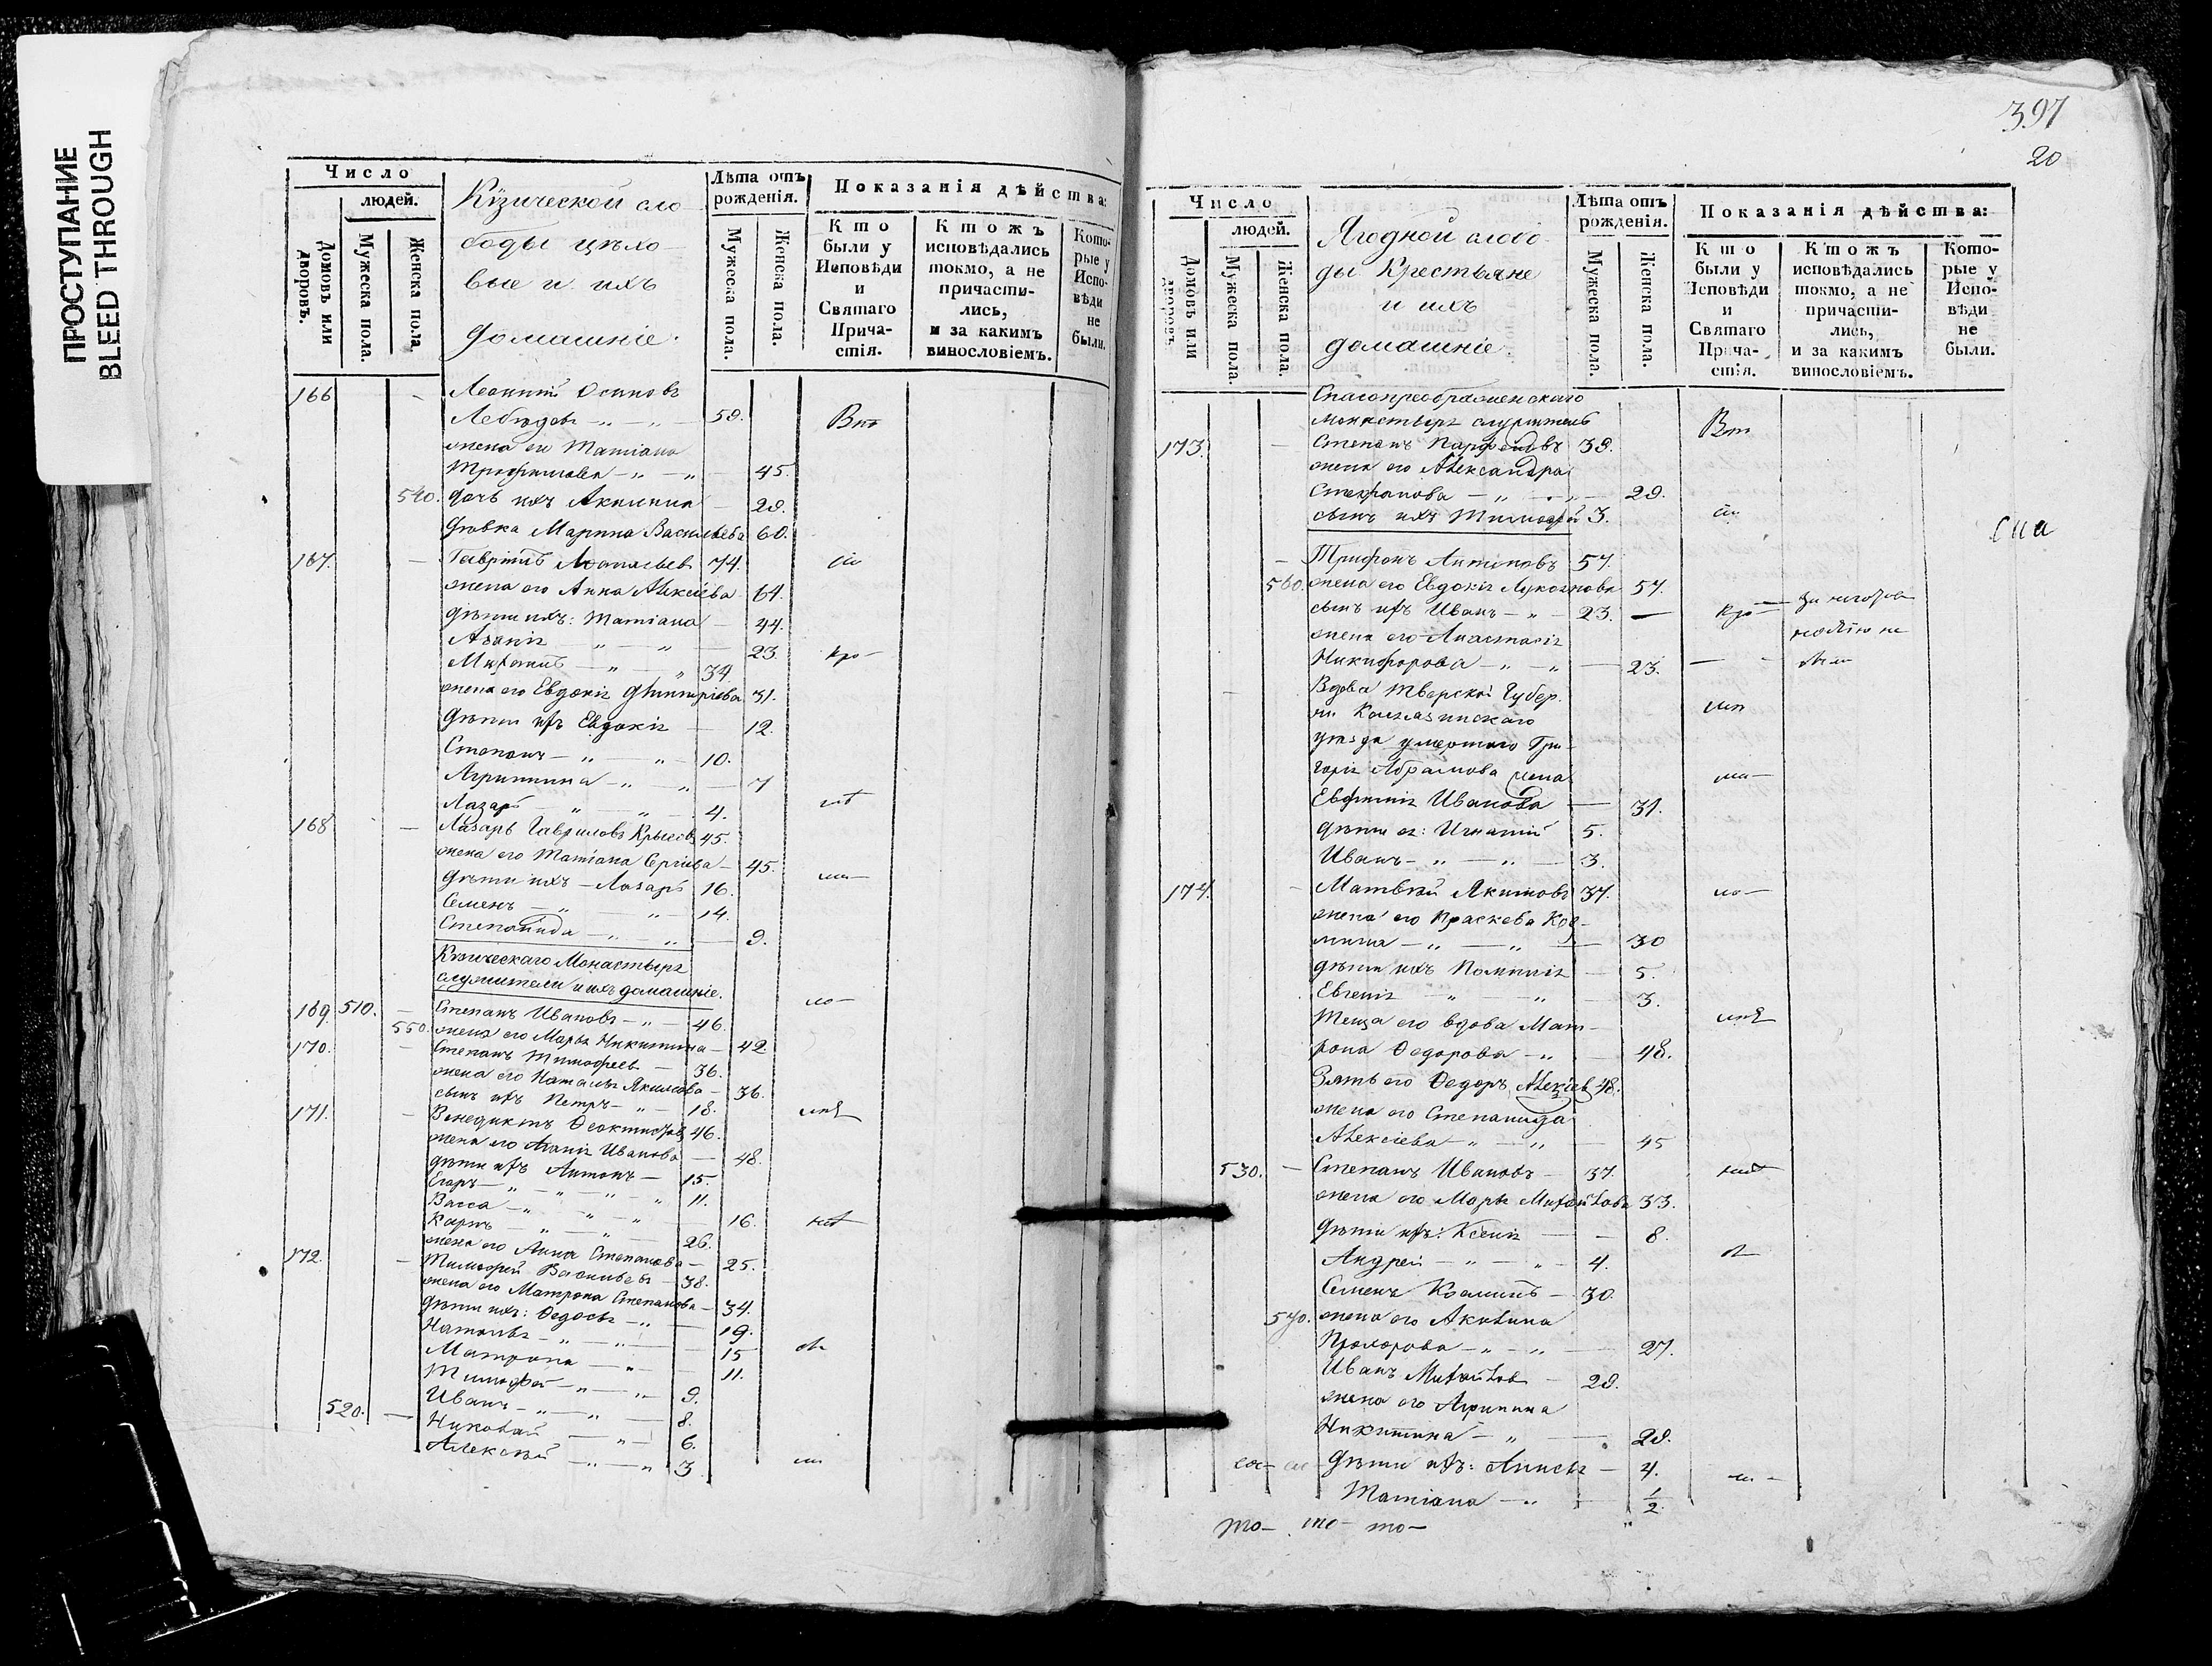 ПРОСТУПАНИЕ
BLEED THROUGH
Число
людей.
Домовъ или дворовъ.
Мужеска пола.
Женска пола.
Кизической сло
боды цѣхо
вые и ихъ
домашніе.
Лѣта отъ
рожденія.
Мужеска пола.
Женска пола.
Показанія дѣйства:
Кто
были у
Исповѣди
и
Святаго
Прича-
стія.
Ктожъ
исповѣдались
токмо, а не
причасти-
лись,
и за какимъ
винословіемъ.
Кото-
рые у
Испо-
вѣди
не
были.
166 Леонтій Осиповъ
Лебедевъ 59.
жена его Татіана
Трофимова 45.
540. дочь ихъ Акилина 29.
дѣвка Марина Васильева 60.
167. Гаврілъ Афонасьев 74.
жена его Анна Алексіева 64.
дѣти ихъ: Татіана 44.
Агапіѧ 23.
Михаилъ 34.
жена его Евдокіѧ Дмитріева 31.
дѣти ихъ Евдокіѧ 12.
Степанъ 10.
Агриппина 7
Лазарь 4.
168 Лазарь Гавриловъ 45.
жена его Татіана Сергіева 45.
дѣти ихъ Лазарь 16.
Семенъ 14.
Степанида 9.
Кизическаго Монастырѧ
служители и ихъ домашніе.
169 510. Степанъ Ивановъ 46.
550. жена его Марьѧ Никитина 42
170. Степанъ Тимофеев 36.
жена его Натальѧ Якимова 36.
сынъ ихъ Петръ 18.
171. Венедиктъ Феоктистовъ 46.
жена его Агапіѧ Иванова 48.
дѣти ихъ Антонъ 15.
Егоръ 11.
Васса 16.
Карпъ 26.
жена его Анна Степанова 25.
172. Тимофей Васильевъ 38.
жена его Матрона Степанова 34.
дѣти ихъ: Федосьѧ 19.
Натальѧ 15
Матрона 11.
Тимофей 9.
Иванъ 8.
520. Николай 6.
Алексѣй 3
397
20
Число
людей.
Домовъ или дворовъ.
Мужеска пола.
Женска пола.
Ягодной слобо
ды Крестьяне
и ихъ
домашніе.
Лѣта отъ
рожденія.
Мужеска пола.
Женска пола.
Показанія дѣйства:
Кто
были у
Исповѣди
и
Святаго
Прича-
стія.
Ктожъ
исповѣдались
токмо, а не
причасти-
лись,
и за какимъ
винословіемъ.
Кото-
рые у
Испо-
вѣди
не
были.
Спасопреображенскаго
монастырѧ служитель
173. Степанъ Парфеновъ 39.
жена его Александра
Стефанова 29.
сынъ ихъ Тимофей 3.
Трифонъ Антиповъ 57.
560. жена его Евдокіѧ 57.
сынъ ихъ Иванъ 23.
жена его Анастасіѧ
Никифорова 23.
Вдова Тверской Губер.
ніи Колязинскаго
уѣзда умершаго Гри-
горіѧ Абрамова жена
Евфиміѧ Иванова 31.
дѣти еѧ: Игнатій 5.
Иванъ 3.
174. Матвѣй Якимовъ 37.
жена его Праскева Коз-
мина 30
дѣти ихъ 5.
Евгеніѧ 3.
Теща его вдова Мат-
рона Федорова 48.
Зять его Федоръ Алексіев 48.
жена его Степанида
Алексіева 45
530. Степанъ Ивановъ 37.
жена его Марьѧ Михайлова 33.
дѣти ихъ: Ксеніѧ 8.
Андрей 4.
Семенъ Козминъ 30.
570. жена его Акилина
Прохорова 27.
Иванъ Михайлов 29.
жена его Агрипина
Никитина 29.
дѣти ихъ: Анисьѧ 4.
Татіана 1/2.
то- то- то-